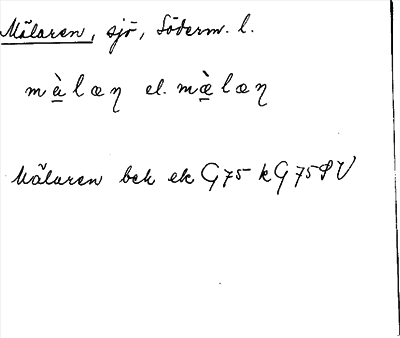 Mälaren, sjö, Söderm. l.
m à̲ l æ ŋ el. m æ̲̀ l æ ŋ
Mälaren bek ek G75 k G75SV